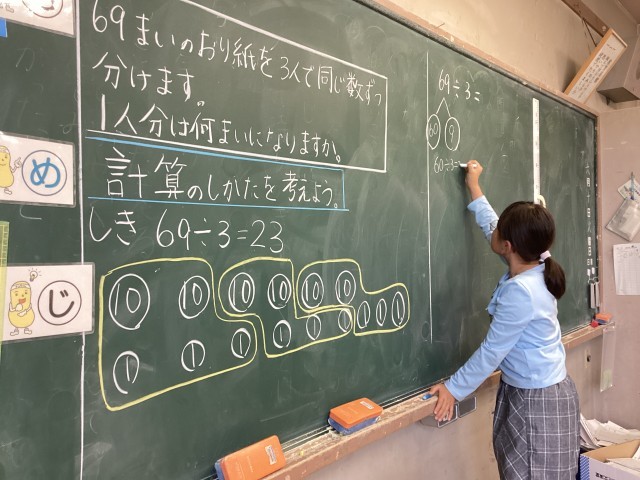 69まいのおり紙を3人で同じ数ずつ
分けます。
1人分は何まいになりますか。
計算のしかたを考えよう。
しき 69÷3=23
10 10 10 10 10 10
1 1 1 1 1 1 1 1 1
69÷3=
60 9
60÷3=
め
じ